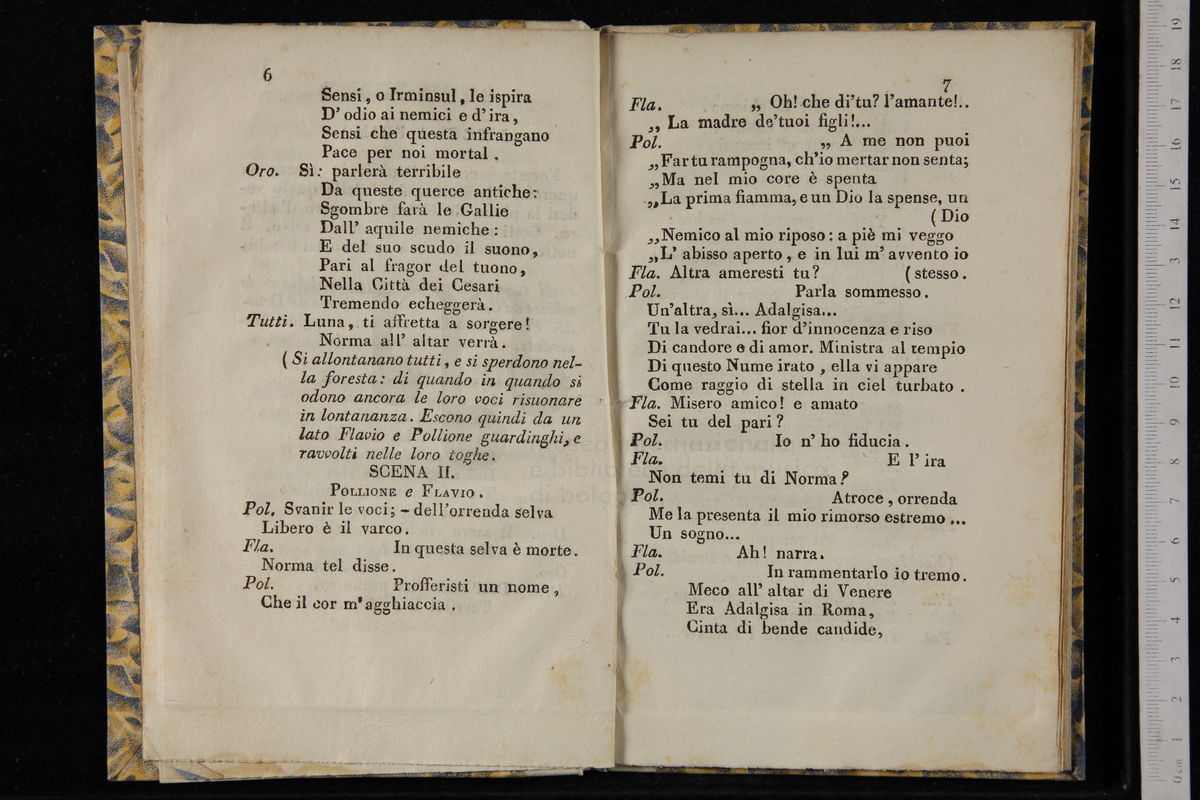 6
Sensi, o Irminsul, le ispira
D' odio ai nemici e d' ira,
Sensi che questa infrangano
Pace per noi mortal.
Oro. Sì: parlerà terribile
Da queste querce antiche:
Sgombre farà le Gallie
Dall' aquile nemiche:
E del suo scudo il suono,
Pari al fragor del tuono,
Nella Città dei Cesari
Tremendo echeggerà.
Tutti. Luna, ti affretta a sorgere!
Norma all' altar verrà.
( Si allontanano tutti, e si sperdono nel-
la foresta: di quando in quando si
odono ancora le loro voci risuonare
in lontananza. Escono quindi da un
lato Flavio e Pollione guardinghi, e
ravvolti nelle loro toghe.
SCENA II.
POLLIONE e FLAVIO.
Pol. Svanir le voci; - dell'orrenda selva
Libero è il varco.
Fla. In questa selva è morte.
Norma tel disse.
Pol. Profferisti un nome,
Che il cor m'agghiaccia.
7
Fla. „ Oh! che di'tu? l'amante!..
„ La madre de'tuoi figli!...
Pol. „ A me non puoi
„Far tu rampogna, ch'io mertar non senta;
„Ma nel mio core è spenta
„La prima fiamma, e un Dio la spense, un
( Dio
„Nemico al mio riposo: a piè mi veggo
„L' abisso aperto, e in lui m' avvento io
Fla. Altra ameresti tu? ( stesso.
Pol. Parla sommesso.
Un'altra, sì... Adalgisa...
Tu la vedrai... fior d'innocenza e riso
Di candore e di amor. Ministra al tempio
Di questo Nume irato, ella vi appare
Come raggio di stella in ciel turbato.
Fla. Misero amico! e amato
Sei tu del pari?
Pol. Io n' ho fiducia.
Fla. E l' ira
Non temi tu di Norma?
Pol. Atroce, orrenda
Me la presenta il mio rimorso estremo...
Un sogno...
Fla. Ah! narra.
Pol. In rammentarlo io tremo.
Meco all' altar di Venere
Era Adalgisa in Roma,
Cinta di bende candide,